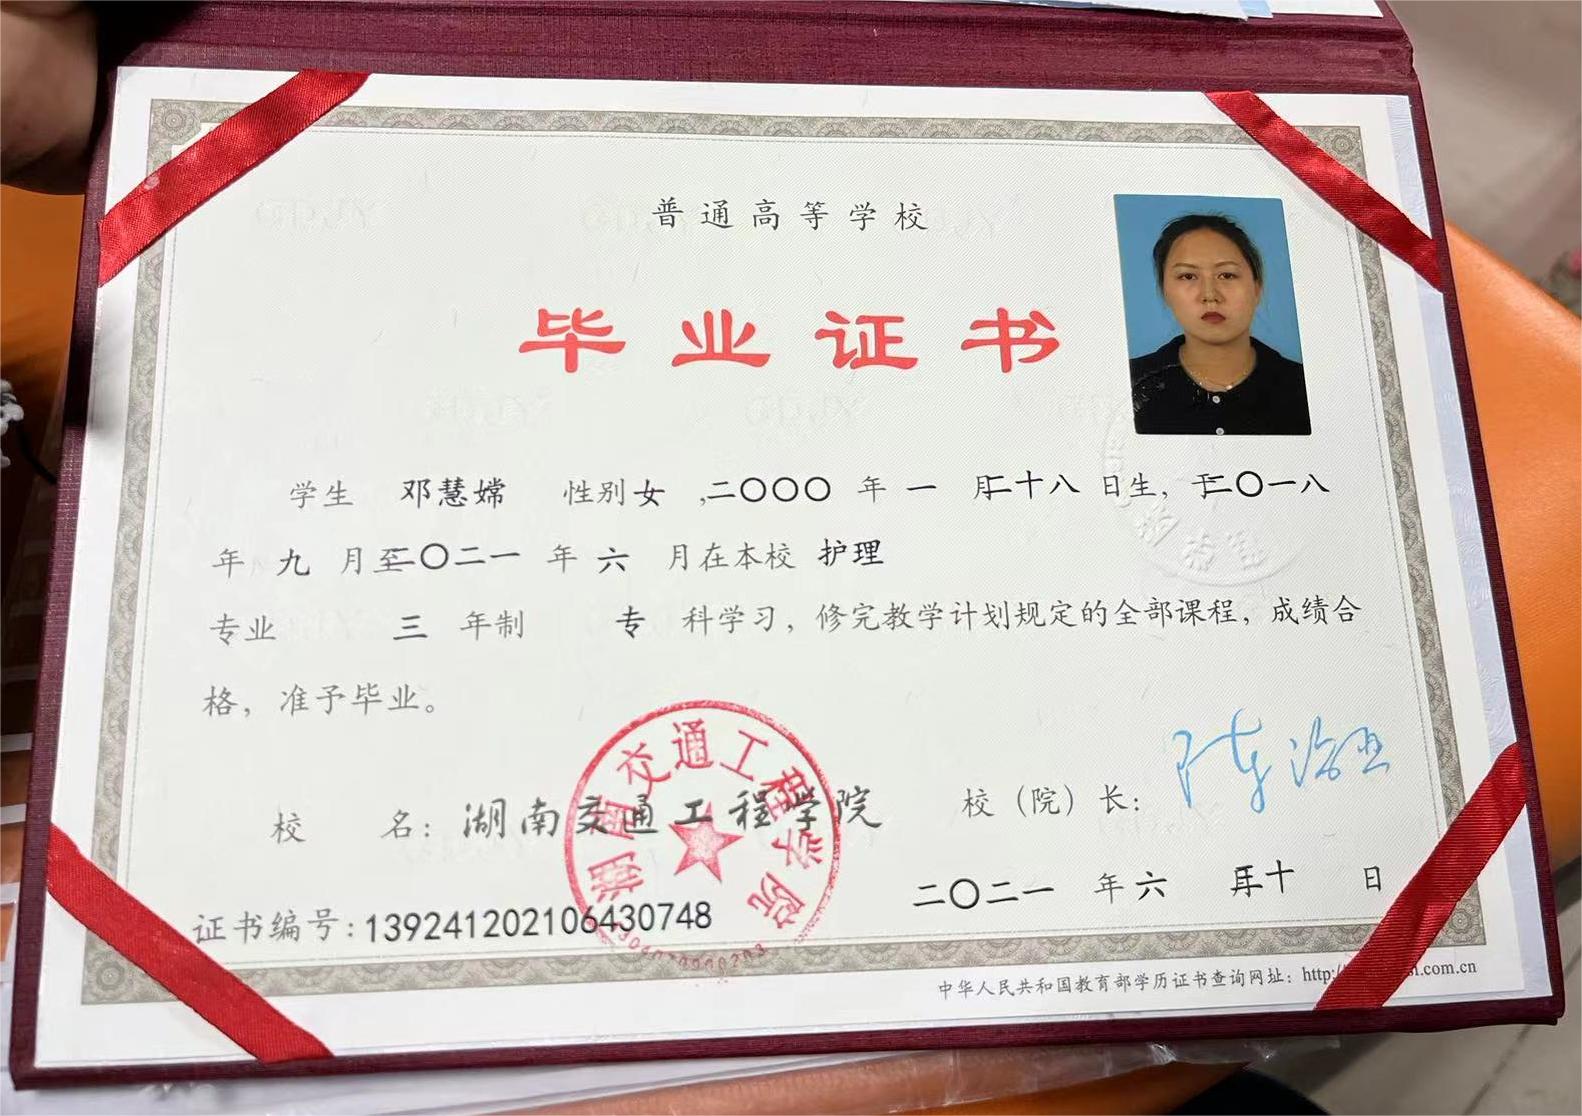 普通高等学校
毕业证书
学生 邓慧嫦 性别女 ,二〇〇〇 年 一 月二十八 日生，于二〇一八
年 九 月至二〇二一 年 六 月在本校 护理
专业 三 年制 专 科学习，修完教学计划规定的全部课程，成绩合
格，准予毕业。
校 名：湖南交通工程学院 校（院）长：
湖南交通工程学院
二〇二一 年 六 月三十 日
证书编号：139241202106430748
中华人民共和国教育部学历证书查询网址：http:// .com.cn